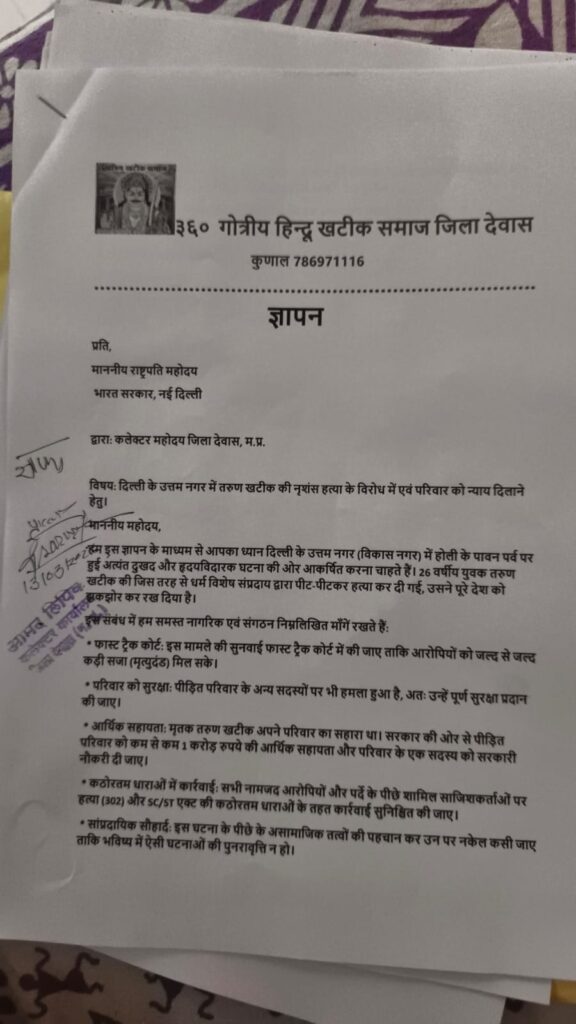 ३६० गोत्रीय हिन्दू खटीक समाज जिला देवास
कुणाल 786971116
ज्ञापन
प्रति,
माननीय राष्ट्रपति महोदय
भारत सरकार, नई दिल्ली
द्वारा: कलेक्टर महोदय जिला देवास, म.प्र.
विषय: दिल्ली के उत्तम नगर में तरुण खटीक की नृशंस हत्या के विरोध में एवं परिवार को न्याय दिलाने
हेतु।
माननीय महोदय,
हम इस ज्ञापन के माध्यम से आपका ध्यान दिल्ली के उत्तम नगर (विकास नगर) में होली के पावन पर्व पर
हुई अत्यंत दुखद और हृदयविदारक घटना की ओर आकर्षित करना चाहते हैं। 26 वर्षीय युवक तरुण
खटीक की जिस तरह से धर्म विशेष संप्रदाय द्वारा पीट-पीटकर हत्या कर दी गई, उसने पूरे देश को
झकझोर कर रख दिया है।
इस संबंध में हम समस्त नागरिक एवं संगठन निम्नलिखित माँगें रखते हैं:
* फास्ट ट्रैक कोर्ट: इस मामले की सुनवाई फास्ट ट्रैक कोर्ट में की जाए ताकि आरोपियों को जल्द से जल्द
कड़ी सजा (मृत्युदंड) मिल सके।
* परिवार को सुरक्षा: पीड़ित परिवार के अन्य सदस्यों पर भी हमला हुआ है, अतः उन्हें पूर्ण सुरक्षा प्रदान
की जाए।
* आर्थिक सहायता: मृतक तरुण खटीक अपने परिवार का सहारा था। सरकार की ओर से पीड़ित
परिवार को कम से कम 1 करोड़ रुपये की आर्थिक सहायता और परिवार के एक सदस्य को सरकारी
नौकरी दी जाए।
* कठोरतम धाराओं में कार्रवाई: सभी नामजद आरोपियों और पर्दे के पीछे शामिल साजिशकर्ताओं पर
हत्या (302) और SC/ST एक्ट की कठोरतम धाराओं के तहत कार्रवाई सुनिश्चित की जाए।
* सांप्रदायिक सौहार्द: इस घटना के पीछे के असामाजिक तत्वों की पहचान कर उन पर नकेल कसी जाए
ताकि भविष्य में ऐसी घटनाओं की पुनरावृत्ति न हो।